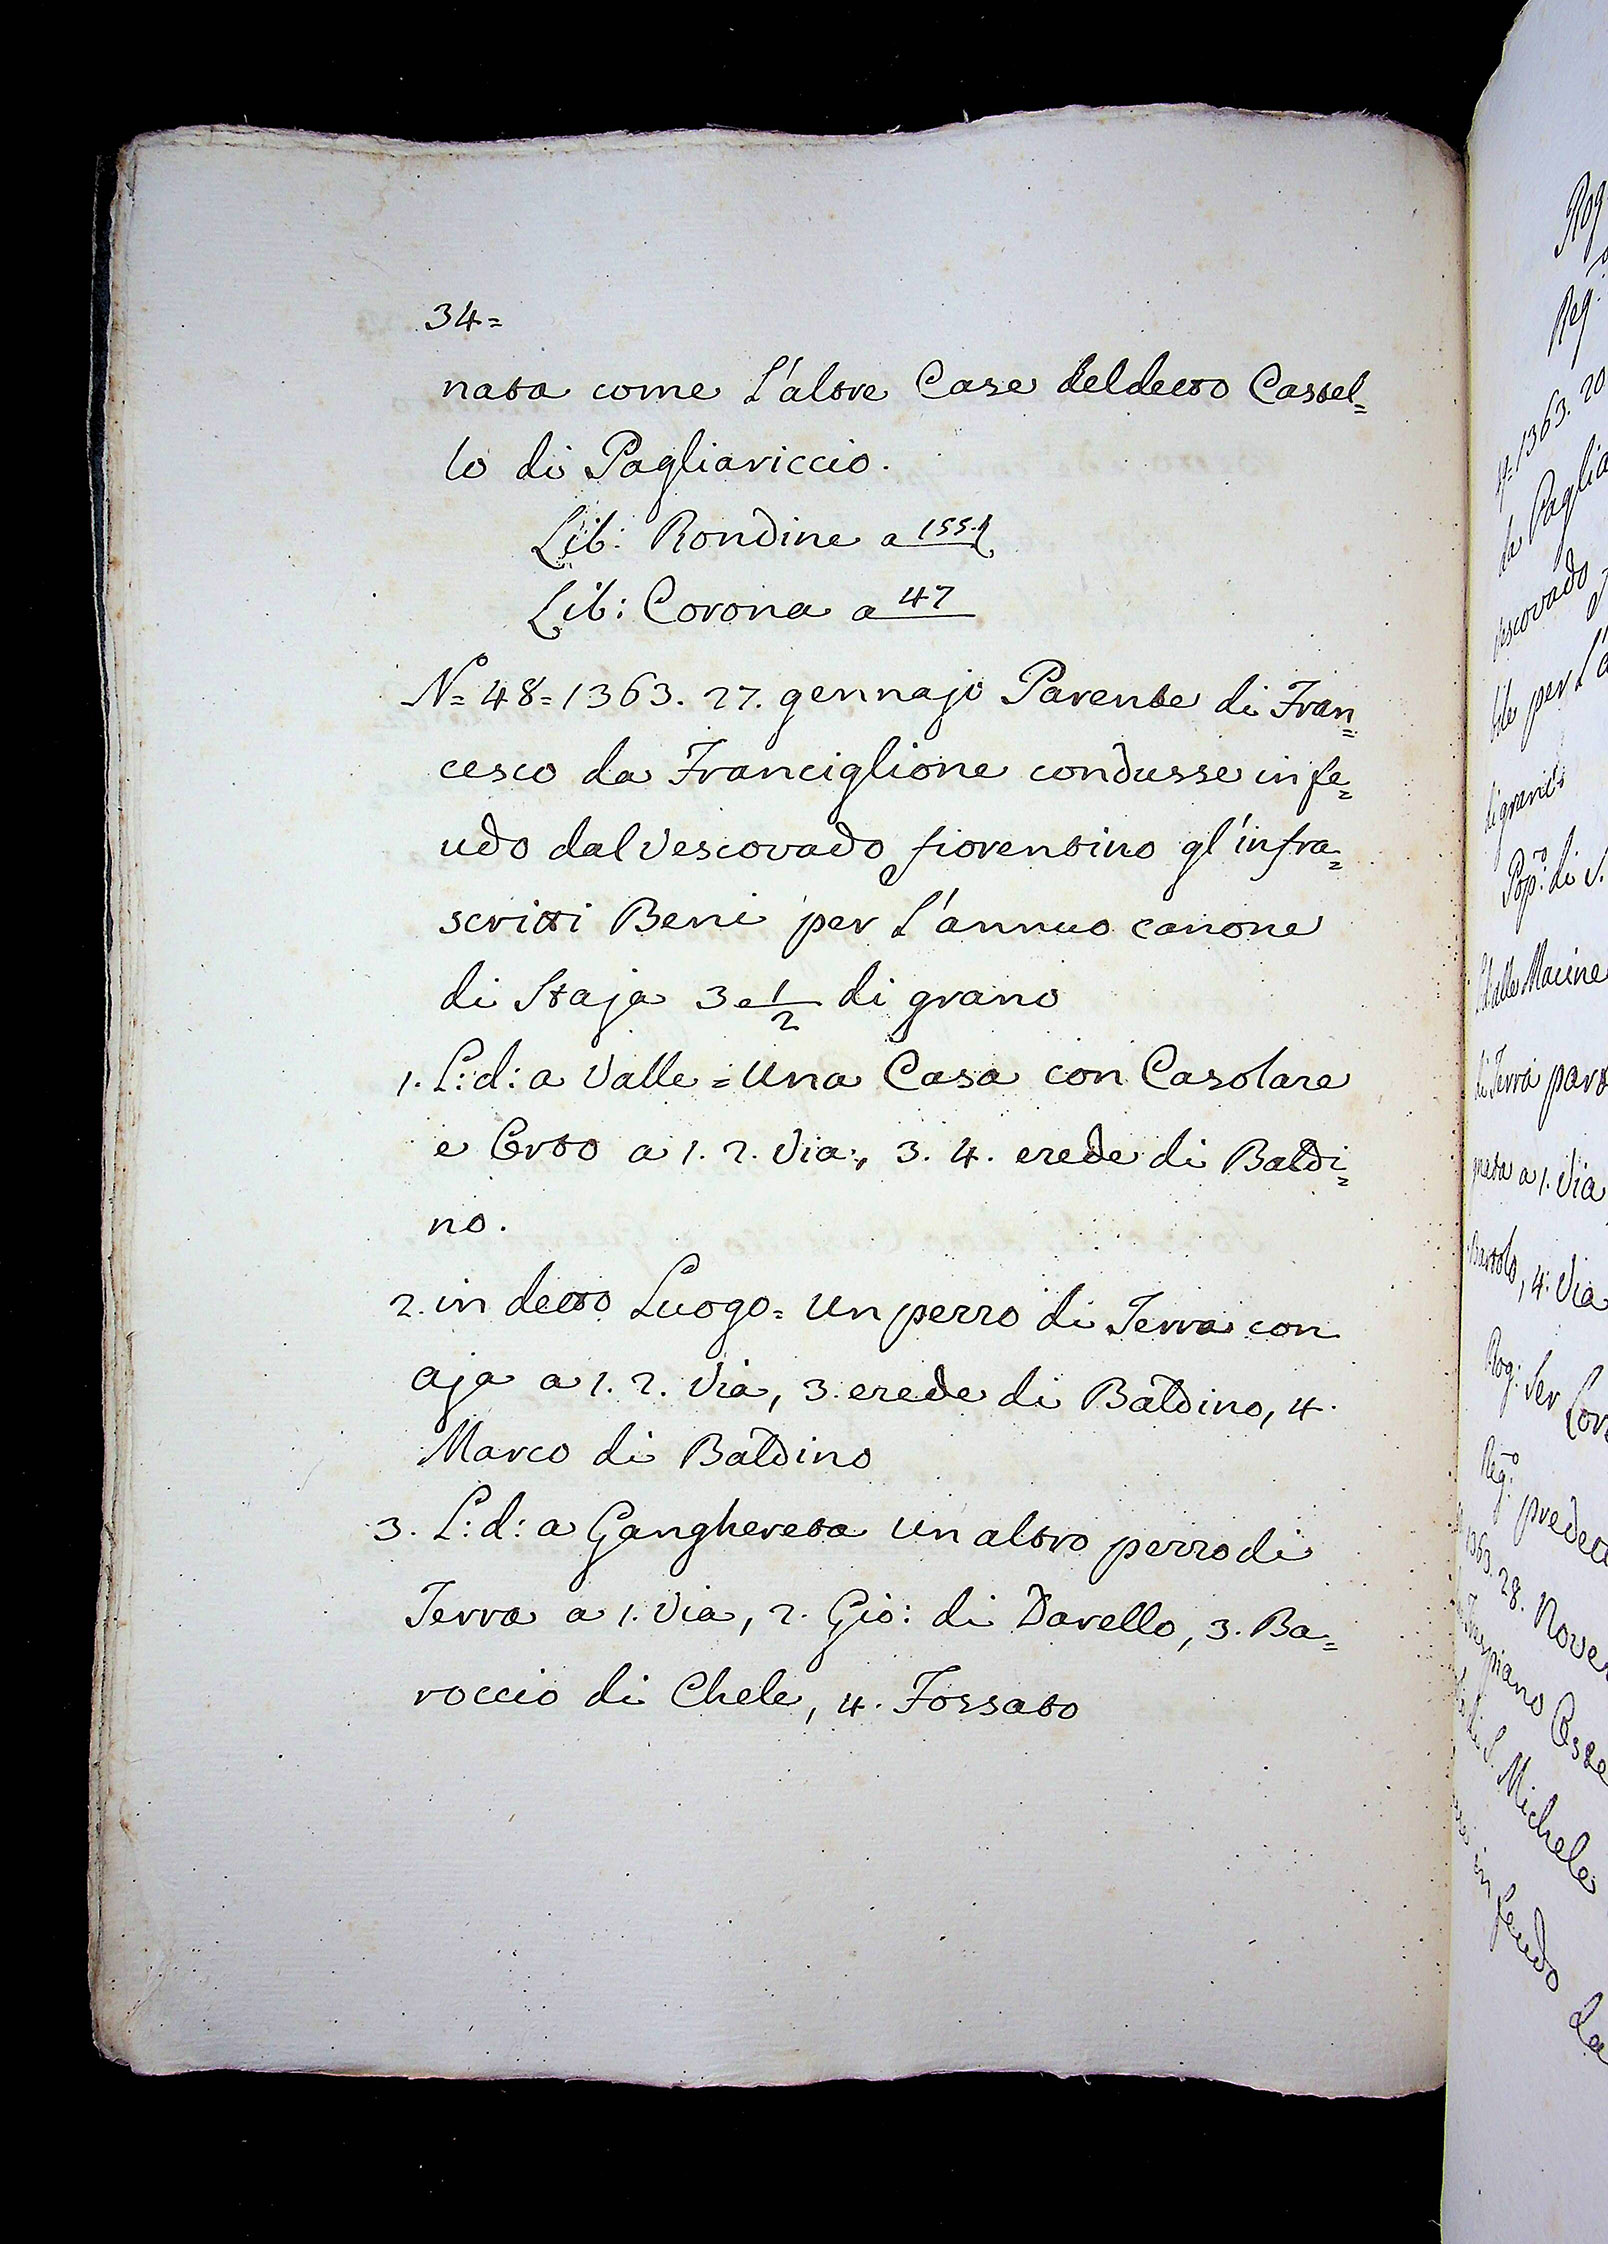 34=
nata come l'altre Case deldetto Castel=
lo di Pagliariccio.
Lib: Rondine a 155.
Lib: Corona a 47
No= 48= 1363. 27. gennajo Parente di Fran=
cesco da Franciglione condusse in fe=
udo dal Vescovado fiorentino gl'infra=
scritti Beni per l'annuo canone
di Staja 3 e 1/2 di grano
1. L: d: a Valle = Una Casa con Casolare
e Orto a 1. 2. Via, 3. 4. erede di Baldi=
no.
2. in detto Luogo= Un pezzo di Terra con
aja a 1. 2. Via, 3. erede di Baldino, 4.
Marco di Baldino
3. L: d: a Ganghereta un altro pezzo di
Terra a 1. Via, 2. Gio: di Davello, 3. Ba=
roccio di Chele, 4. Fossato
Rog
Reg.
4= 1363. 20
da Paglia
Vescovado
per l'a
di grano
Popo: di S.
L: d: alle Macine
di Terra part
nata a 1. Via
Bartolo, 4. Via
Rog: Ser Cor
Rego: predett
1363. 28. Novem
Trespiano
di S. Michele
in feudo da